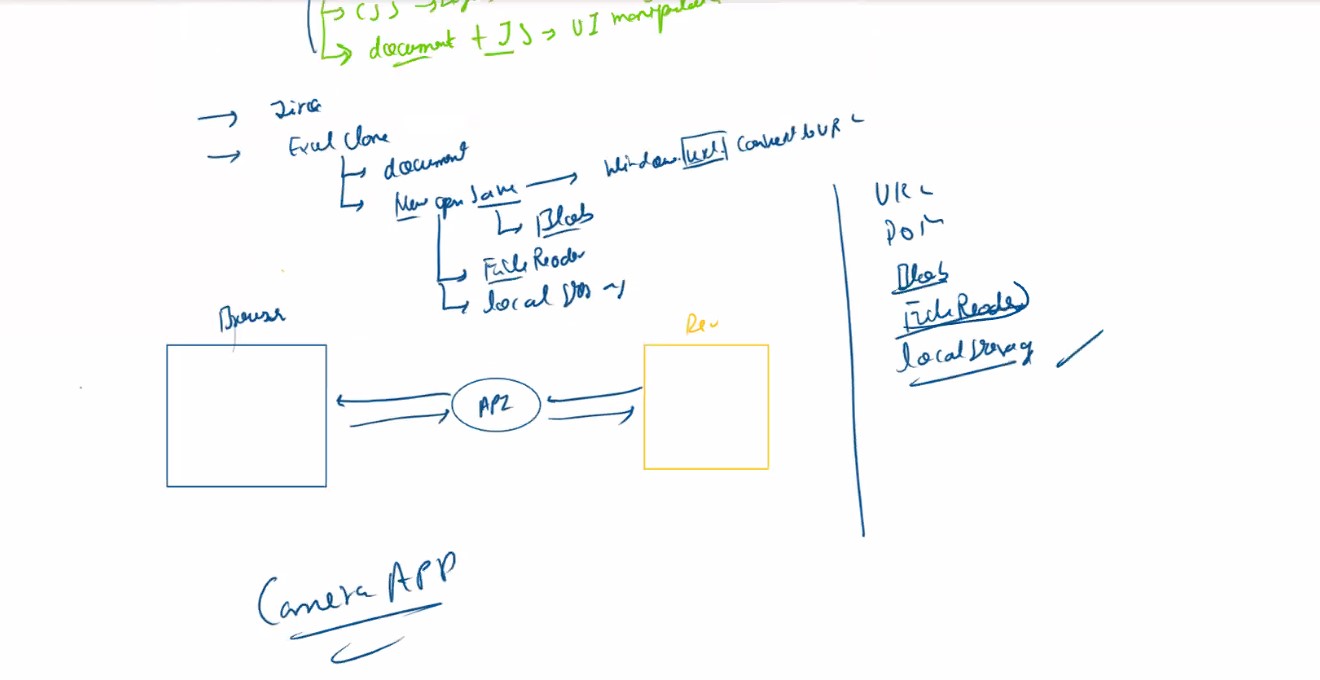 → CSS →
↳ document + JS → UI manipula
→ Jira
→ Excel Clone
↳ document
↳ New open Save → Window.url. Convert to URL
↳ Blob
↳ File Reader
↳ local
Browser
API
URL
DOM
Blob
File Reader
local Storage
Camera APP